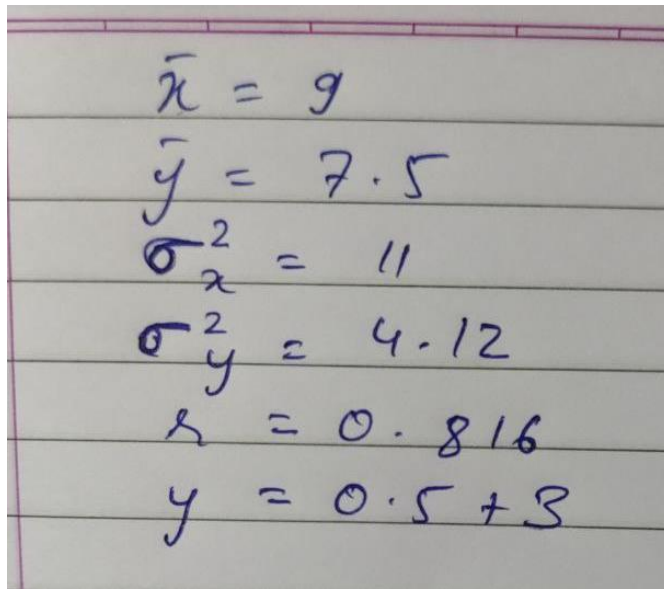 x̄ = 9
ȳ = 7.5
σ²x = 11
σ²y = 4.12
r = 0.816
y = 0.5 + 3